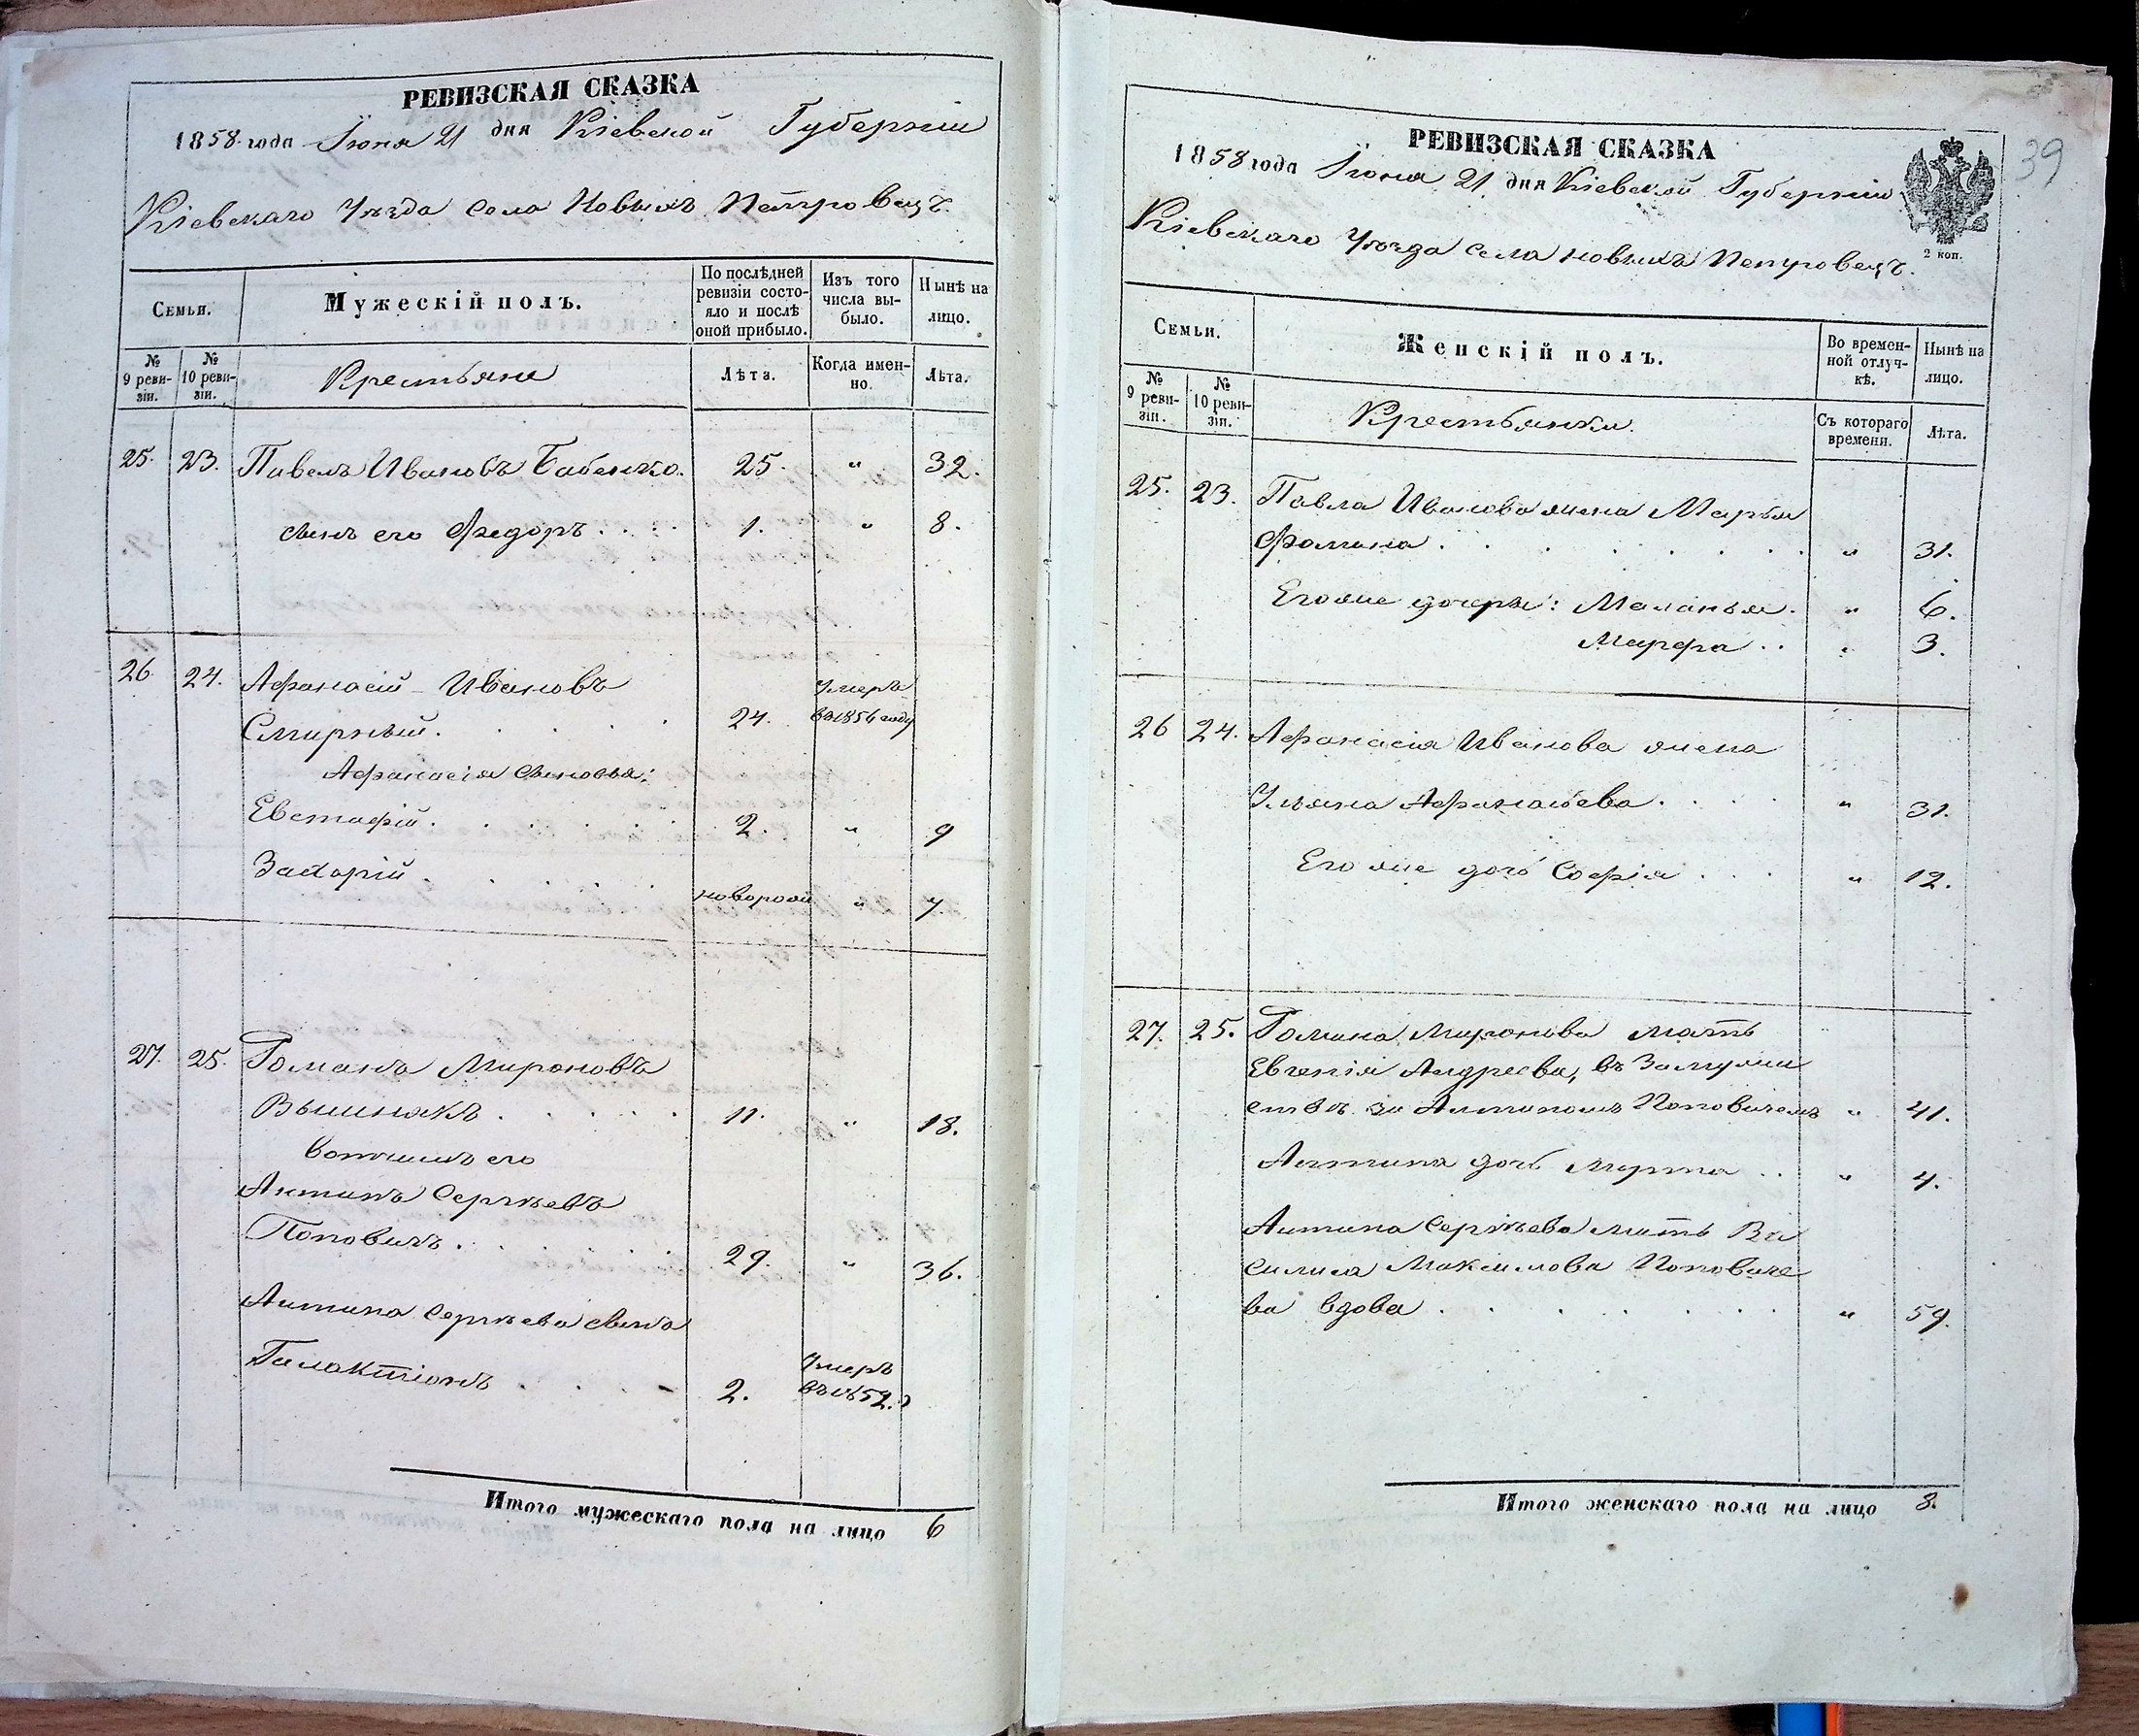 РЕВИЗСКАЯ СКАЗКА
1858 года Іюня 21 дня Кіевской Губерніи
Кіевскаго Уѣзда села Новыхъ Петровецъ.
Семьи.
Мужескій полъ.
По послѣдней ревизіи состояло и послѣ оной прибыло.
Изъ того числа выбыло.
Нынѣ на лицо.
№ 9 ревизіи.
№ 10 ревизіи.
Крестьяне
Лѣта.
Когда именно.
Лѣта.
25. 23. Павелъ Ивановъ Бабенко. 25. " 32.
сынъ его Федоръ . . . . 1. " 8.
26. 24. Афанасій Ивановъ Умеръ
Смирный. . . . . 24. въ 1856 году
Афанасія сыновья:
Евстафій . . . . . . 2. " 9
Захорій . . . . . новорож " 7.
27. 25. Романъ Мироновъ
Вышнякъ . . . . . 11. " 18.
вотчимъ его
Антипъ Сергѣевъ
Поповичъ . . . . . . 29. " 36.
Антипа Сергѣева сынъ
Галактіонъ . . . . 2. Умеръ
въ 1852.
Итого мужескаго пола на лицо 6
39
РЕВИЗСКАЯ СКАЗКА
1858 года Іюня 21 дня Кіевской Губерніи
2 коп.
Кіевскаго Уѣзда села новыхъ Петровецъ.
Семьи.
Женскій полъ.
Во временной отлучкѣ.
Нынѣ на лицо.
№ 9 ревизіи.
№ 10 ревизіи.
Крестьянки.
Съ котораго времени.
Лѣта.
25. 23. Павла Иванова жена Марья
Фомина . . . . . . . " 31.
Его же дочери: Маланья. " 6.
Марфа . . " 3.
26 24. Афанасія Иванова жена
Ульяна Афанасьева . . . . " 31.
Его же дочь Софія . . . " 12.
27. 25. Романа Миронова мать
Евгенія Андреева, въ замуже
ствѣ за Антипомъ Поповичемъ " 41.
Антипа дочь Марта . . " 4.
Антипа Сергѣева мать Ва
силиса Максимова Поповиче
ва вдова . . . . . . . " 59.
Итого женскаго пола на лицо 8.